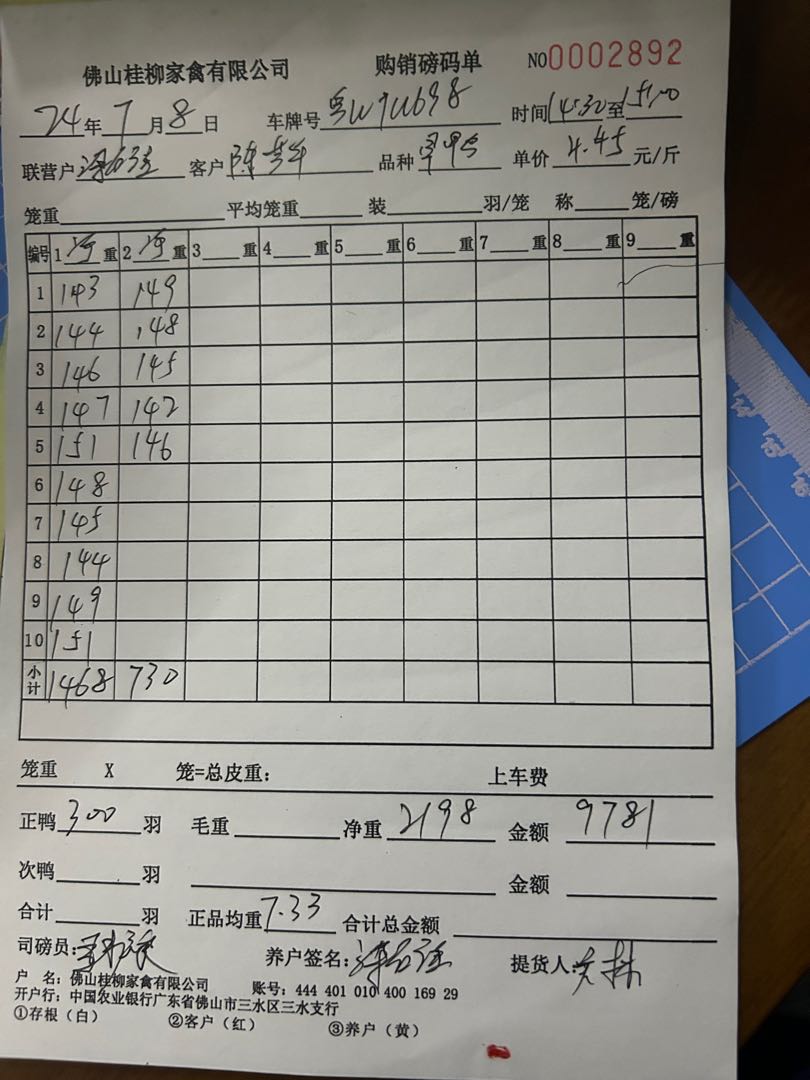 佛山桂柳家禽有限公司 购销磅码单 NO0002892
24年7月8日 车牌号 时间14:30至15:00
联营户 客户 品种 单价4.45元/斤
笼重 平均笼重 装 羽/笼 称 笼/磅
编号 1净重 2净重 3 重 4 重 5 重 6 重 7 重 8 重 9 重
1 143 149
2 144 148
3 146 145
4 147 142
5 151 146
6 148
7 145
8 144
9 149
10 151
小计 1468 730
笼重 X 笼=总皮重： 上车费
正鸭300羽 毛重 净重2198 金额9781
次鸭 羽 金额
合计 羽 正品均重7.33 合计总金额
司磅员： 养户签名： 提货人：
户 名：佛山桂柳家禽有限公司 账号：444 401 010 400 169 29
开户行：中国农业银行广东省佛山市三水区三水支行
①存根（白） ②客户（红） ③养户（黄）